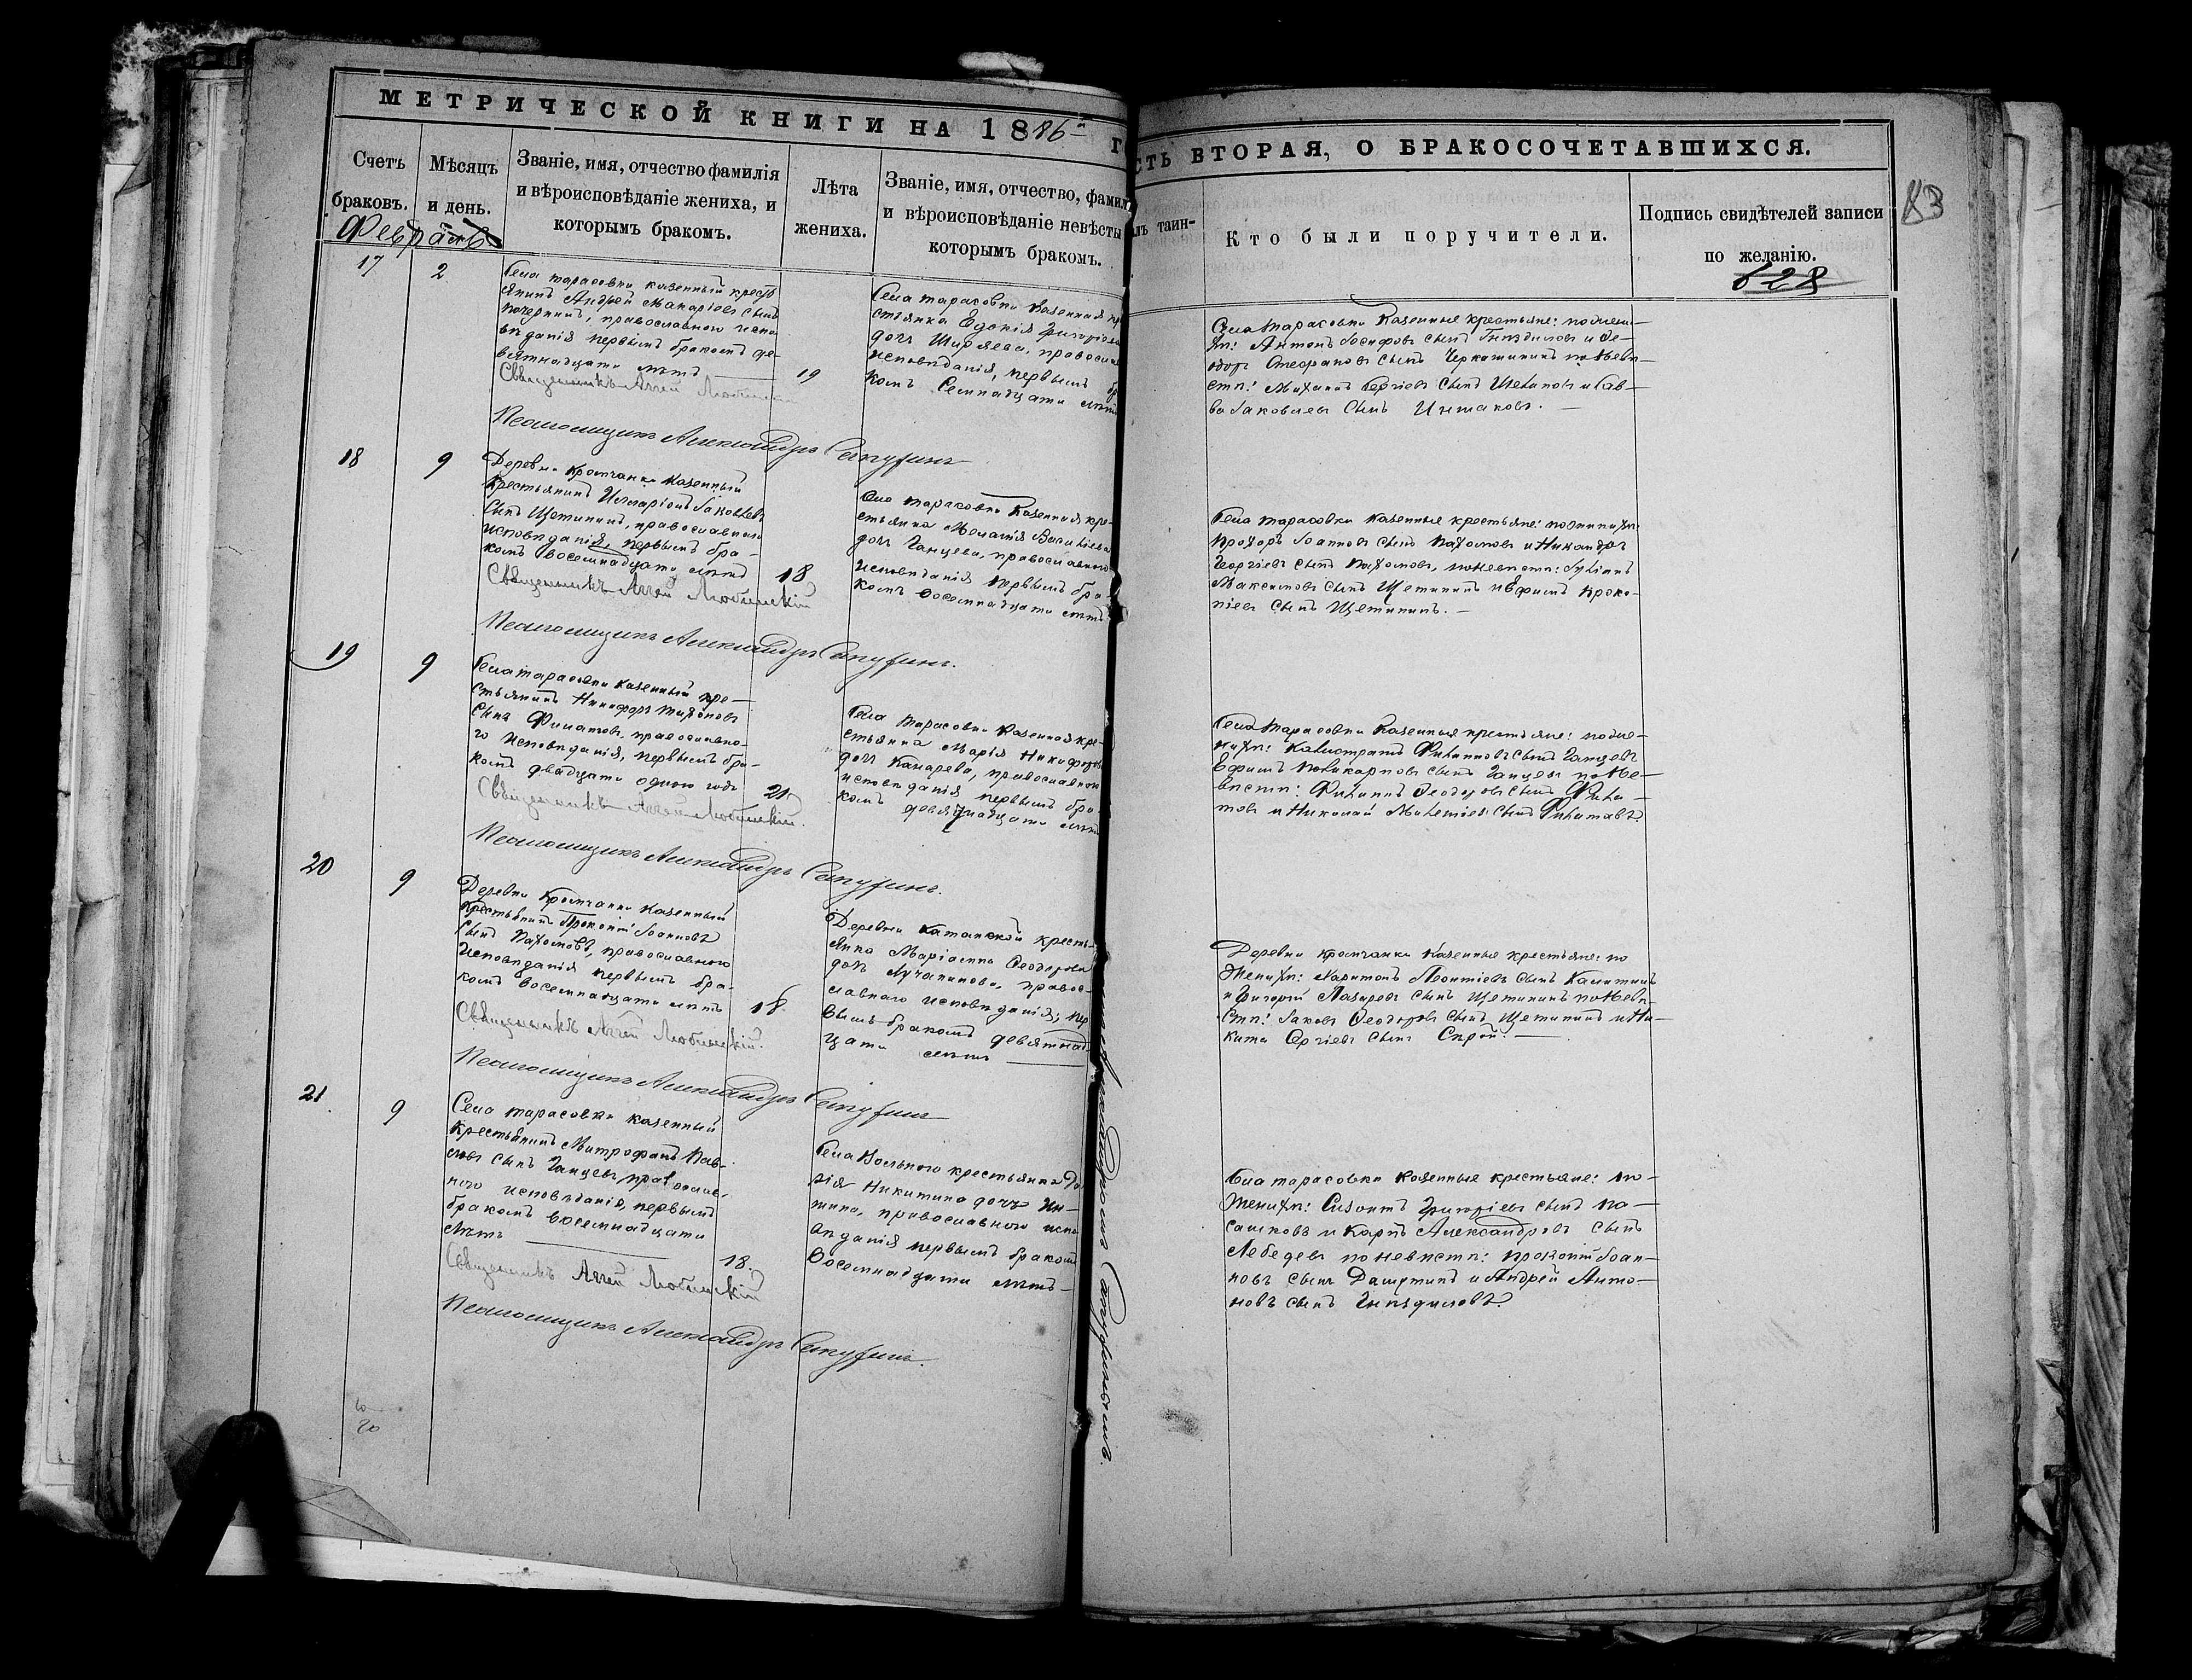 МЕТРИЧЕСКОЙ КНИГИ НА 1886й Г
СТЬ ВТОРАЯ, О БРАКОСОЧЕТАВШИХСЯ.
Счетъ
браковъ.
Мѣсяцъ
и день.
Званіе, имя, отчество фамилія
и вѣроисповѣданіе жениха, и
которымъ бракомъ.
Лѣта
жениха.
Званіе, имя, отчество, фамил
и вѣроисповѣданіе невѣсты
которымъ бракомъ.
таин-
Кто были поручители.
Подпись свидѣтелей записи
по желанію.
83
628
Февраль
17
2
Села Тарасовки казенный кресть
янинъ Андрей Макаріевъ сынъ
православнаго испо
вѣданія первымъ бракомъ де
вятнадцати лѣтъ
19
Священникъ Аггей Любицкій
Псаломщикъ Александръ
Села Тарасовки казенная кр
стьянка Евдокія Григоріева
дочь Ширяева, правосла
исповѣданія, первымъ бр
комъ Семнадцати лѣтъ
Села Тарасовки казенные крестьяне: по жени-
хѣ: Антонъ Іосифовъ сынъ Гнѣздиловъ и Ѳе-
одоръ Стефановъ сынъ по невѣ-
стѣ: Михаилъ Сергіевъ сынъ и Сав-
ва Іаковлевъ сынъ
18
9
Деревни Кромчанки казенный
крестьянинъ Илларіонъ Іаковлевъ
сынъ Щетининъ, православнаго
исповѣданія, первымъ бра-
комъ восемнадцати лѣтъ
18
Священникъ Аггей Любицкій
Псаломщикъ Александръ
Села Тарасовки казенная кре-
стьянка Меланія Васильева
дочь Ганцева, православнаго
исповѣданія первымъ бра-
комъ восемнадцати лѣтъ
Села Тарасовки казенные крестьяне: по женихѣ:
Прохоръ Іоанновъ сынъ Пахомовъ и Никандръ
Георгіевъ сынъ Пахомовъ, по невѣстѣ: Іуліанъ
Максимовъ сынъ Щетининъ и Ефимъ Проко-
піевъ сынъ Щетининъ.
19
9
Села Тарасовки казенный кре-
стьянинъ Никифоръ Тихоновъ
сынъ Филатовъ, православна-
го исповѣданія, первымъ бра-
комъ двадцати одного года
21
Священникъ Аггей Любицкій.
Псаломщикъ Александръ
Села Тарасовки казенная кре-
стьянка Марія Никифорова
дочь Канарева, православнаго
исповѣданія первымъ бра-
комъ девятнадцати лѣтъ
Села Тарасовки казенные крестьяне: по же-
нихѣ: Калистратъ Филипповъ сынъ Ганцевъ
Ефимъ Поликарповъ сынъ Ганцевъ по не-
вѣстѣ: Филиппъ Ѳеодоровъ сынъ Фила-
товъ и Николай сынъ Филатовъ.
20
9
Деревни Кромчанки казенный
крестьянинъ Прокопій Іоанновъ
сынъ Пахомовъ, православнаго
исповѣданія первымъ бра-
комъ восемнадцати лѣтъ
18.
Священникъ Аггей Любицкій.
Псаломщикъ Александръ
Деревни кресть-
янка Маріамна Ѳеодорова
дочь Лучанинова, правос-
лавнаго исповѣданія, пер
вымъ бракомъ девятнад-
цати лѣтъ
Деревни Кромчанки казенные крестьяне: по
женихѣ: Харитонъ Леонтіевъ сынъ Калитинъ
и Григорій Лазаревъ сынъ Щетининъ по невѣ-
стѣ: Іаковъ Ѳеодоровъ сынъ Щетининъ и Ни-
кита Сергіевъ сынъ
21
9
Села Тарасовки казенный
крестьянинъ Митрофанъ Пав-
ловъ сынъ Ганцевъ, православ-
наго исповѣданія, первымъ
бракомъ восемнадцати
лѣтъ
18.
Священникъ Аггей Любицкій
Псаломщикъ Александръ
Села Вольнаго крестьянка Да
рія Никитина дочь
православнаго испо
вѣданія первымъ бракомъ
восемнадцати лѣтъ
Села Тарасовки казенные крестьяне: по
женихѣ: Сизонтъ Григоріевъ сынъ
и Карпъ Александровъ сынъ
Лебедевъ по невѣстѣ: Прокопій Іоан-
новъ сынъ Дашутинъ и Андрей Анто-
новъ сынъ Гнѣздиловъ.
20